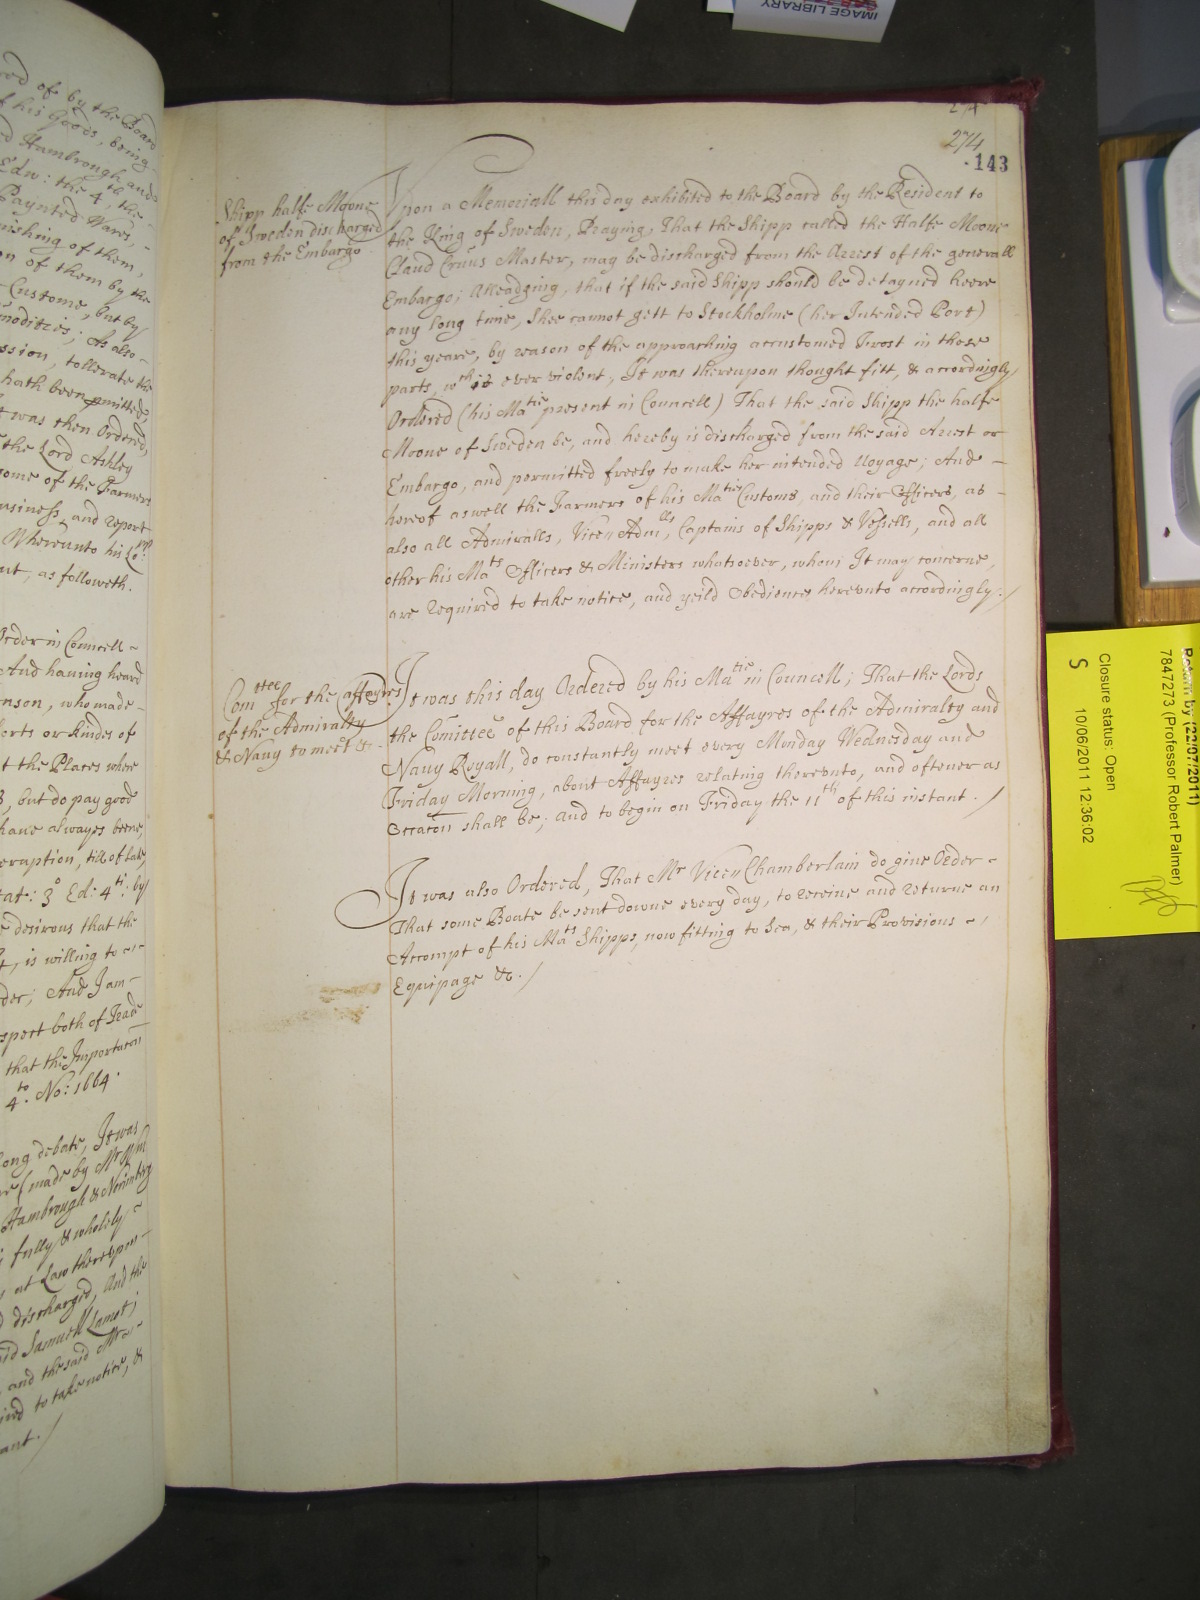 IMAGE LIBRARY
274
274
143
Shipp halfe Moone
of Sweden discharged
from the Embargo
Upon a Memoriall this day exhibited to the Board by the Resident to
the King of Sweden, Praying, That the Shipp called the Halfe Moone
Claud Cruus Master, may be discharged from the Arrest of the generall
Embargo; Alleadging, that if the said Shipp should be detayned heere
any long time, Shee cannot gett to Stockholme (her Intended Port)
this yeare, by reason of the approaching accustomed Frost in those
parts, wch is ever violent, It was thereupon thought fitt, & accordingly
Ordered (his Matie present in Councell) That the said Shipp the halfe
Moone of Sweden be, and hereby is discharged from the said Arrest or
Embargo, and permitted freely to make her intended Voyage; And
hereof aswell the Farmers of his Maties Customs, and their Officers, as
also all Admiralls, Vice Admlls, Captains of Shipps & Vessells, and all
other his Mats Officers & Ministers whatsoever, whom It may concerne,
are required to take notice, and yeild Obedience hereunto accordingly./
Comttee for the affayres
of the Admiralty
& Navy to meet &c
It was this day Ordered by his Matie in Councell; That the Lords
the Comittee of this Board for the Affayres of the Admiralty and
Navy Royall, do constantly meet every Monday Wednesday and
Friday Morning, about Affayres relating thereunto, and oftener as
Occation shall be; and to begin on Friday the 11th of this instant. /
It was also Ordered, That Mr Vice Chamberlain do give Order
That some Boate be sent downe every day, to receive and returne an
Accompt of his Mats Shipps, now fitting to Sea, & their Provisions
Equipage &c. /
of by the Board
his Goods, being
Hambrough and
Edw: the 4th, the
Paynted Wares,
of them,
of them by the
Custome, but by
As also
tollerate the
hath been pmitted,
was then Ordered,
the Lord Ashley
some of the Farmers
and report
Whereunto his Lopp
as followeth.
Order in Councell
And having heard
who made
or kindes of
the Places where
but do pay good
have alwayes beene,
till of late
3o Ed: 4ti: by
desirous that the
is willing to
And I am
both of Trade
that the Importacon
4to. No: 1664.
long debate, It was
(made by Mr
Hambrough & Norimberg
fully & wholely
at Law thereupon
discharged, And the
said Samuell Lamot;
and the said Mr
to take notice, &
Return by (22/07/2011)
7847273 (Professor Robert Palmer)
Closure status: Open
S 10/06/2011 12:36:02